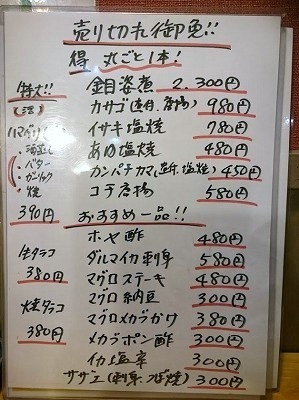 売り切れ御免!!
得 丸ごと1本!
金目姿煮 2,300円
カサゴ(造り、唐揚) 980円
イサキ塩焼 780円
あゆ塩焼 480円
カンパチカマ(造り、塩焼) 450円
コチ唐揚 580円
おすすめ一品!!
ホヤ酢 480円
ダルマイカ刺身 580円
マグロステーキ 480円
マグロ納豆 300円
マグロメカブがけ 380円
メカブポン酢 300円
イカ塩辛 300円
サザエ(刺身、つぼ焼) 300円
特大!!
(活)
ハマグリ
・酒蒸し
・バター
・ガーリック
・焼
390円
生タラコ
380円
焼タラコ
380円